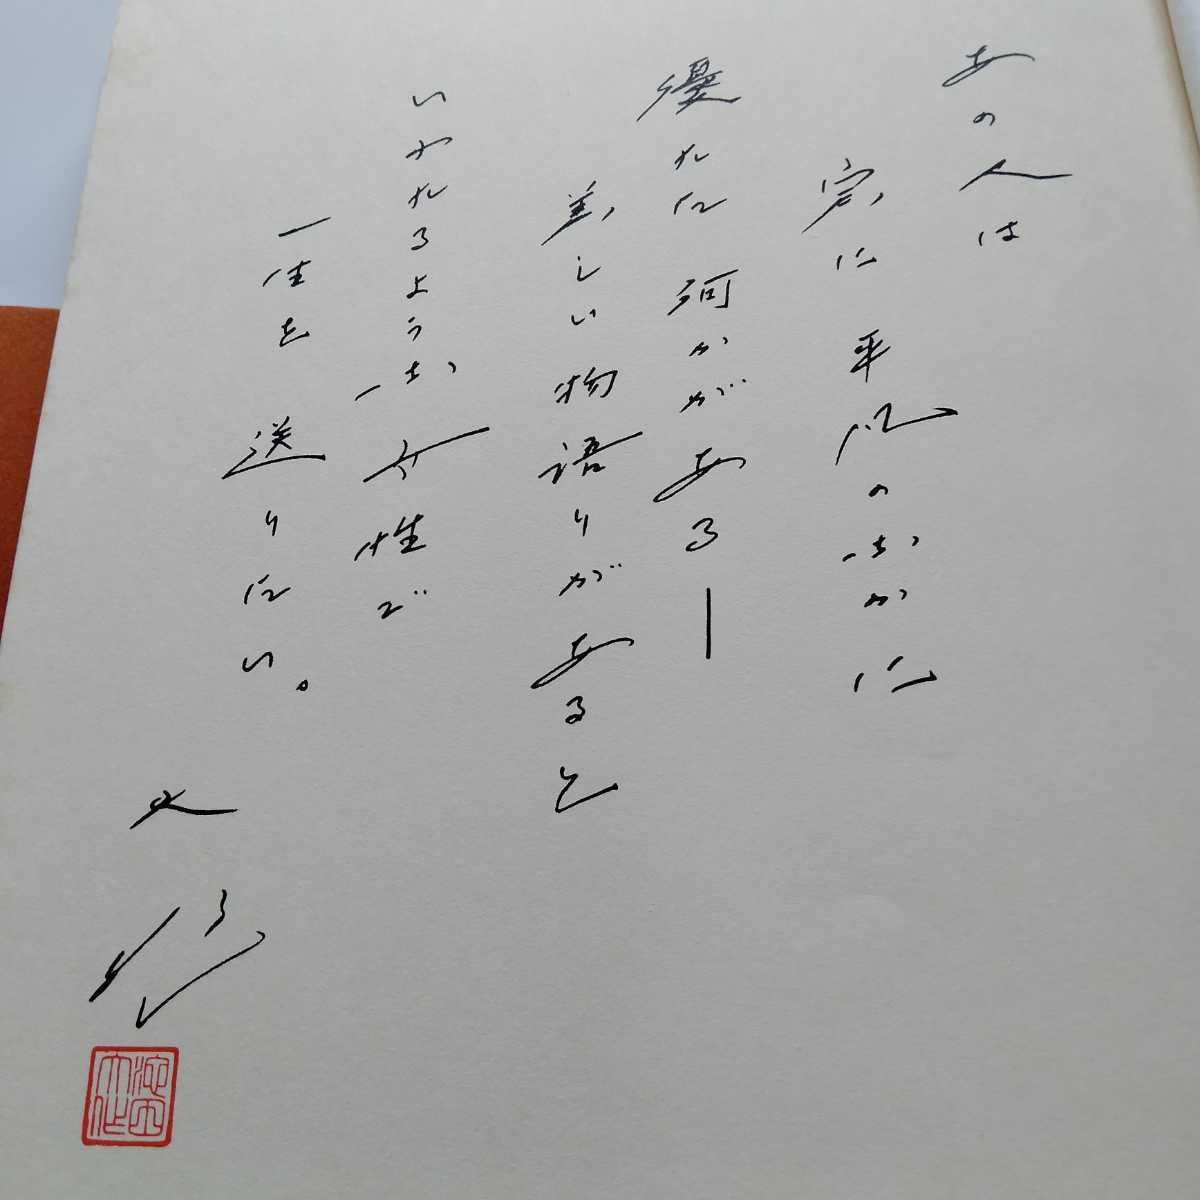 あの人は
実に平凡のなかに
優れた何かがある―
美しい物語りがあると
いわれるような女性で
一生を送りたい。
大作
池田
大作